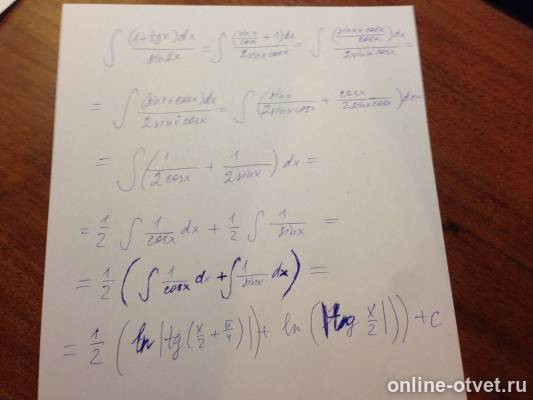 ∫ (1+tgx)dx / sin2x = ∫ (sinx/cosx + 1)dx / 2sinxcosx = ∫ (sinx+cosx / cosx)dx / 2sinxcosx =
= ∫ (sinx+cosx)dx / 2sinxcosx = ∫ (sinx / 2sinxcosx + cosx / 2sinxcosx) dx =
= ∫ (1 / 2cosx + 1 / 2sinx) dx =
= 1/2 ∫ 1/cosx dx + 1/2 ∫ 1/sinx =
= 1/2 (∫ 1/cosx dx + ∫ 1/sinx dx) =
= 1/2 (ln|tg(x/2 + π/4)| + ln(|tg x/2|)) + c
online-otvet.ru